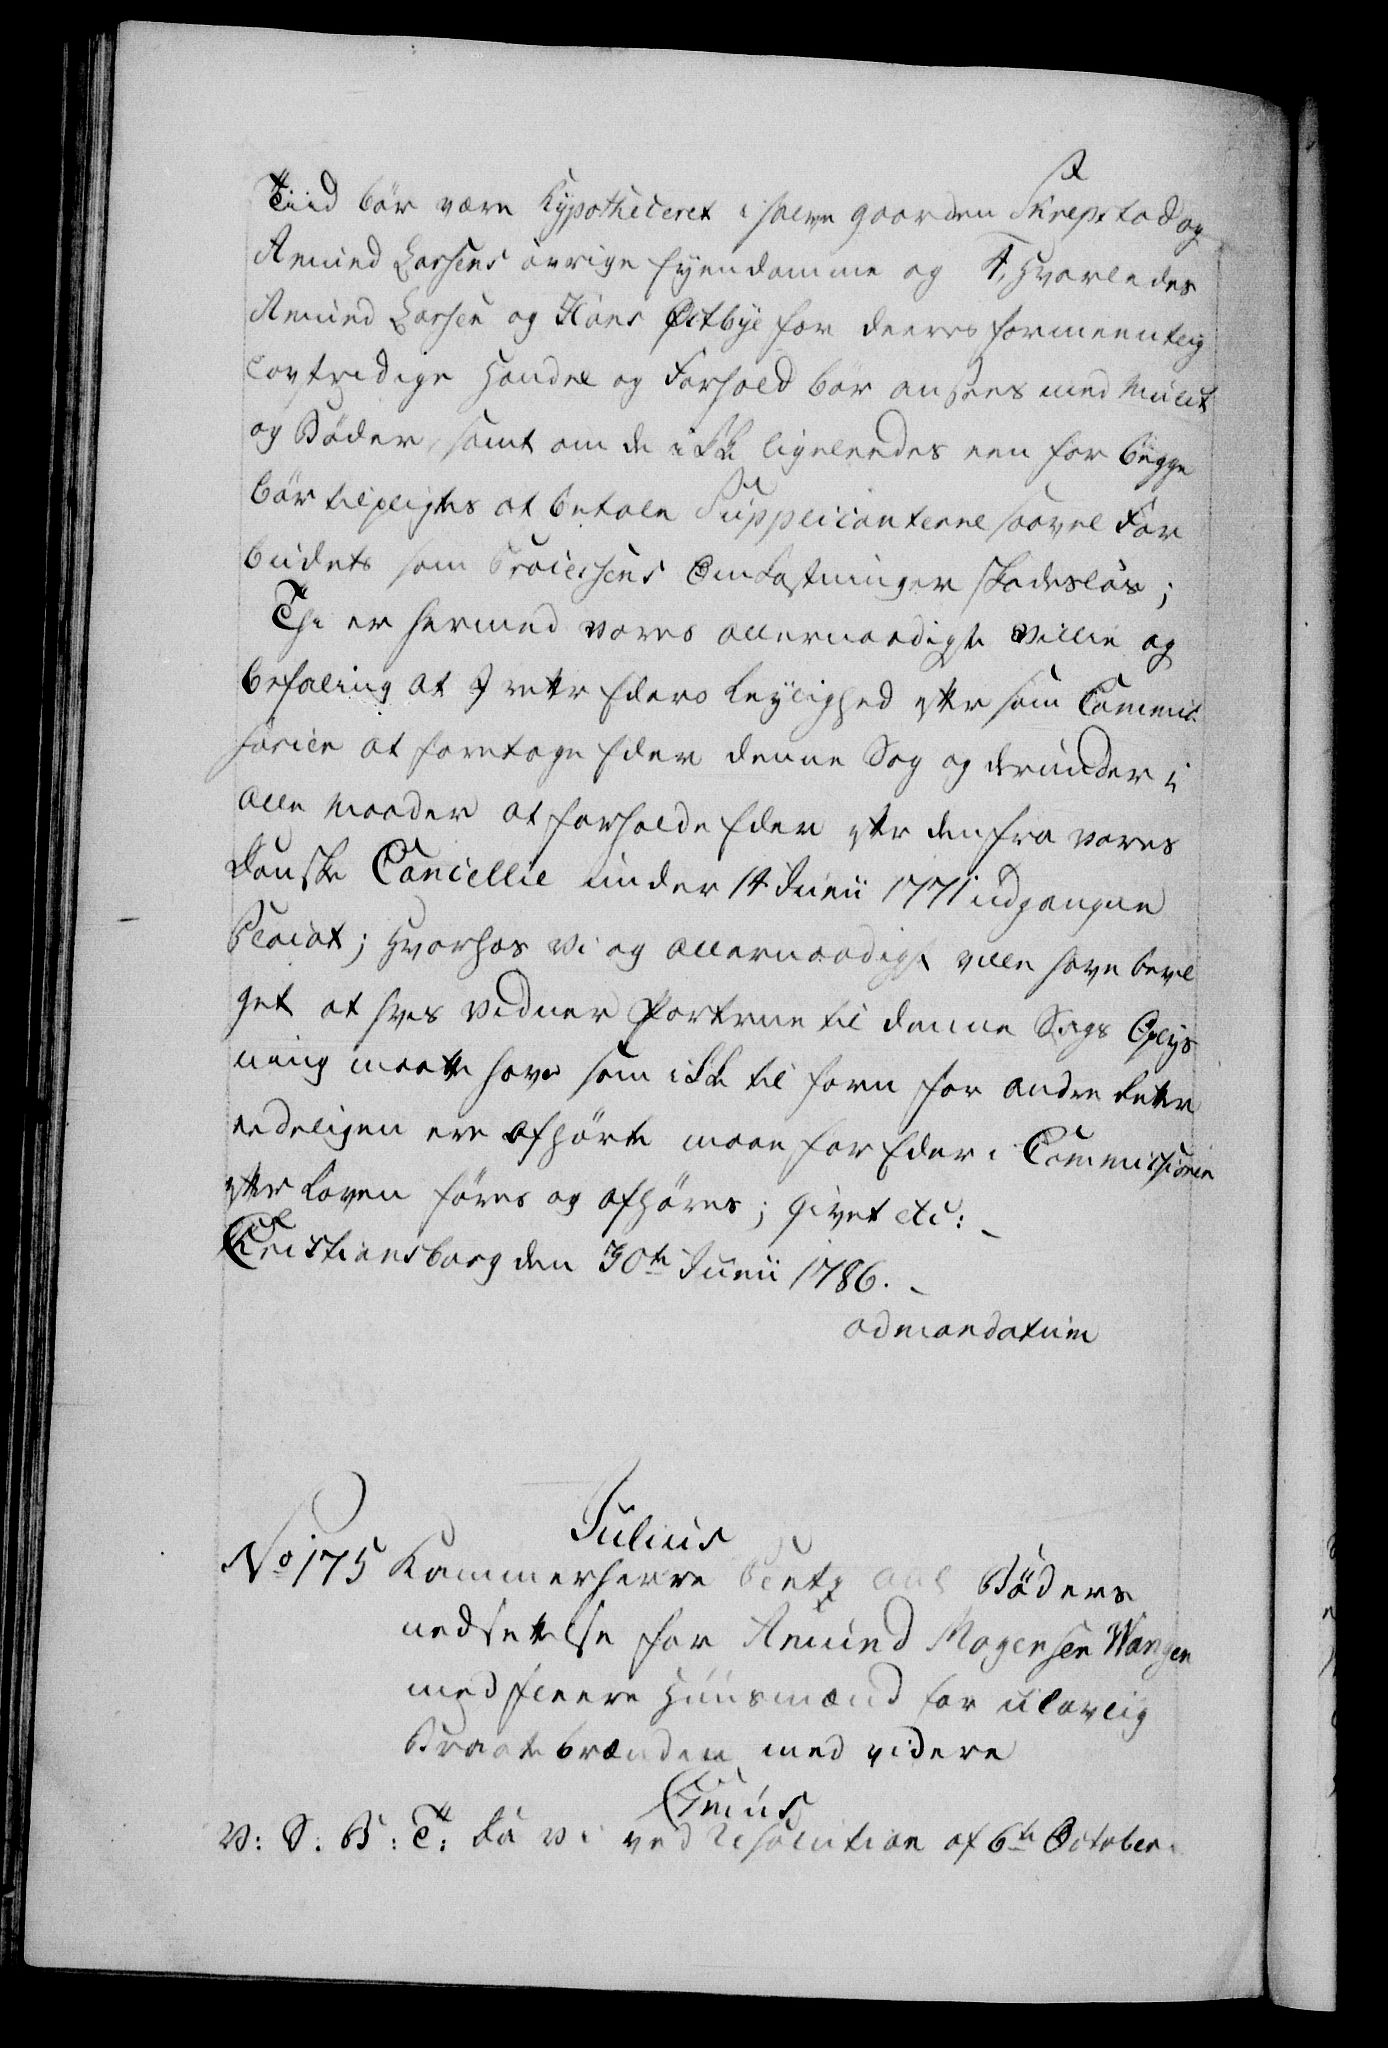 Tiid bör være Hypotheceret i halve gaarden Skrepstad og
Amund Larsens øvrige Eyendomme og 4, Hvorledes
Amund Larsen og Hans Østbye for deeres formeentlig
Lovstridige Handel og Forhold bör ansees med Mulct
og Bøder, samt om de ikke ligeleedes een for begge
bör tilpligtes at betale Supplicanterne saavel For
budets som Processens Omkostninger skadesløs;
Thi er hermed vores allernaadigste Villie og
befaling at I rette Eders Leylighed efter som Commis
sarier at foretage Eder denne Sag og derunder i
alle Maader at forholde Eder efter den fra vores
Danske Cancellie under 14 Junii 1771 udgangne
Placat; Hvorhos vi og allernaadigst ville have bevil
get at hves Vidner Parterne til denne Sags Oplys
ning maatte have som ikke til forn for andre Retter
endeligen ere afhørte maae for Eder i Commissionen
efter Loven føres og afhøres; Givet etc:
Christiansborg den 30te Junii 1786.
ad mandatum
Julius
No 175 Kammerherre Bentz anl Bøders
nedsettelse for Amund Mogensen Wangen
med fleere Huusmænd for ulovlig
Braatebrænden med videre
Cnus
V: S. B: T: Da vi ved Resolution af 6te October